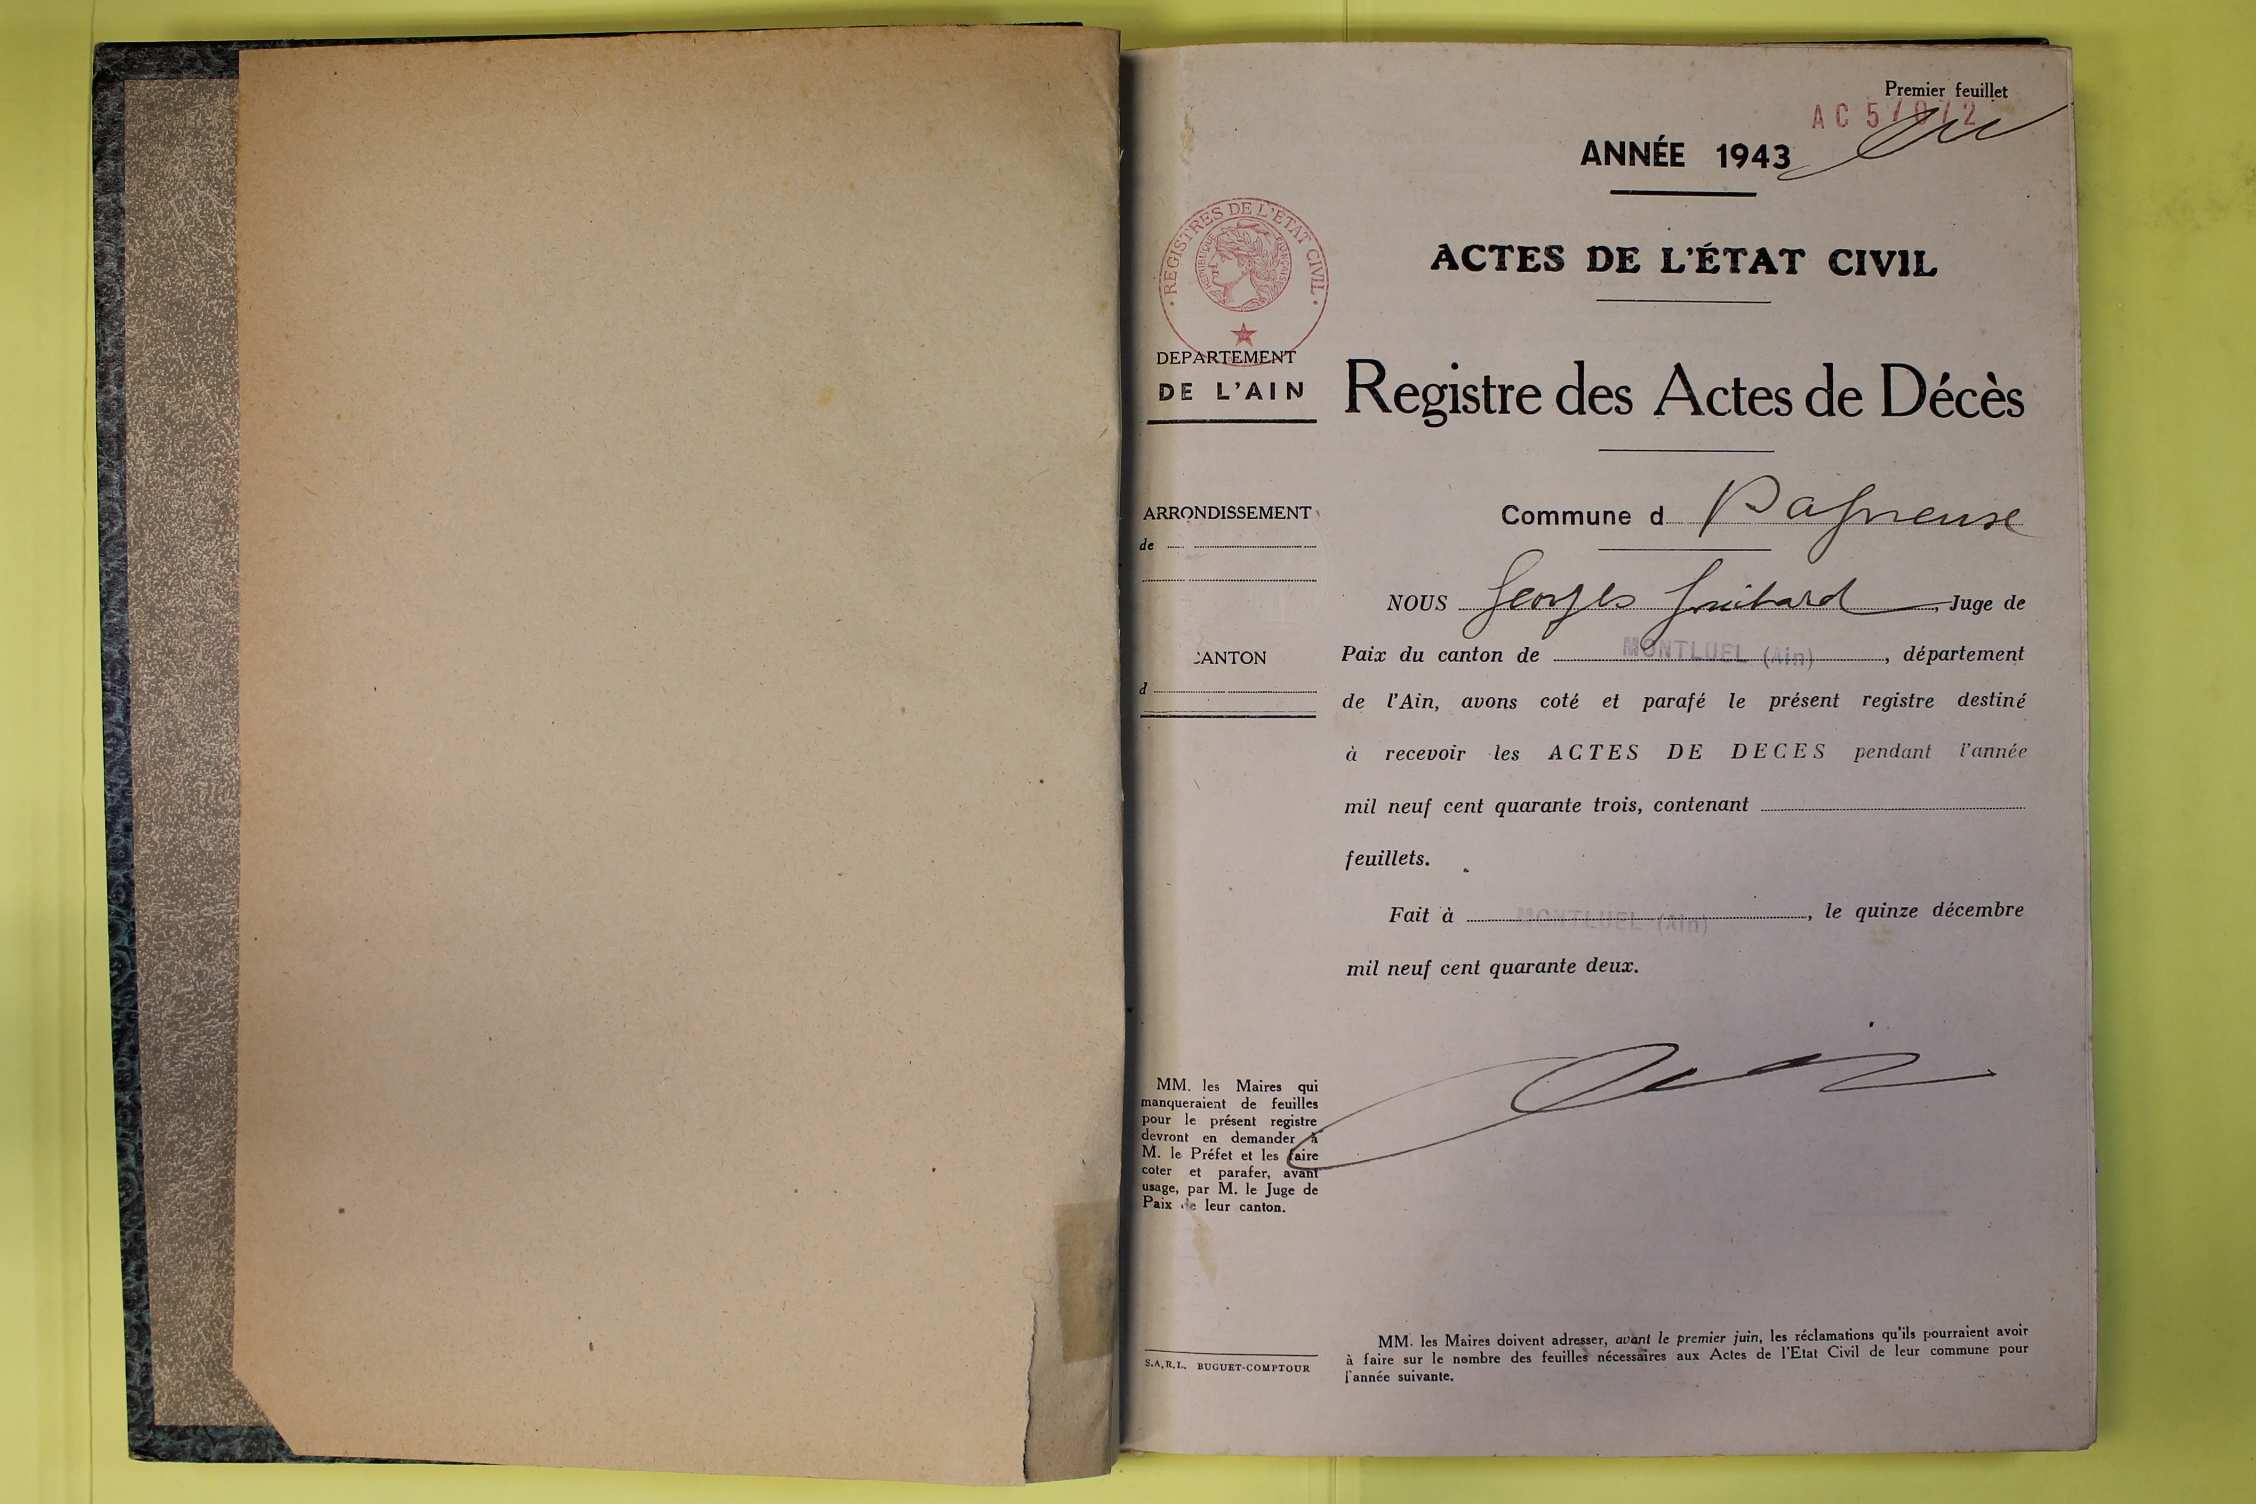 Premier feuillet
AC 5/0/2
ANNÉE 1943
REGISTRES DE L'ETAT CIVIL
REPUBLIQUE FRANÇAISE
ACTES DE L'ÉTAT CIVIL
DEPARTEMENT
DE L'AIN
Registre des Actes de Décès
ARRONDISSEMENT
de
Commune d Dagneux
NOUS Georges Guibard, Juge de
CANTON
d
Paix du canton de MONTLUEL (Ain), département
de l'Ain, avons coté et parafé le présent registre destiné
à recevoir les ACTES DE DECES pendant l'année
mil neuf cent quarante trois, contenant
feuillets.
Fait à MONTLUEL (Ain), le quinze décembre
mil neuf cent quarante deux.
MM. les Maires qui
manqueraient de feuilles
pour le présent registre
devront en demander à
M. le Préfet et les faire
coter et parafer, avant
usage, par M. le Juge de
Paix de leur canton.
S.A.R.L. BUGUET-COMPTOUR
MM. les Maires doivent adresser, avant le premier juin, les réclamations qu'ils pourraient avoir
à faire sur le nombre des feuilles nécessaires aux Actes de l'Etat Civil de leur commune pour
l'année suivante.